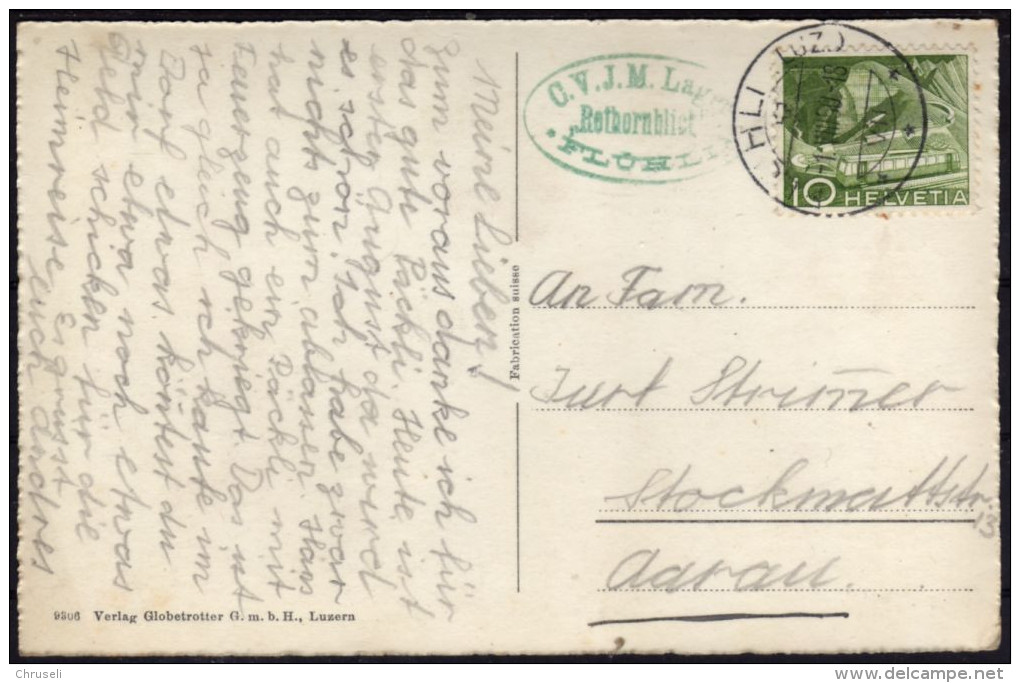 Meine Lieben!
Zum voraus danke ich für
das gute Päckli. Heute ist
erster August da wird
es schon. Ich habe zwar
nicht zum abbauen. Hans
hat auch ein Päckli mit
Feuerzeug gekriegt. Das ist
ja gleich ich kaufe im
Dorf etwas. Könntest du
mir etwa noch etwas
Geld schicken für die
Heimreise. Es grüsst
Euch Andres
9306 Verlag Globetrotter G. m. b. H., Luzern
Fabrication suisse
C.V.J.M. Lager
„Rothornblick"
FLÜHLI
HLI
UZ.)
10 HELVETIA
An Fam.
Kurt Strimer
Stockmattstr.
13
Aarau.
Chruseli
www.delcampe.net